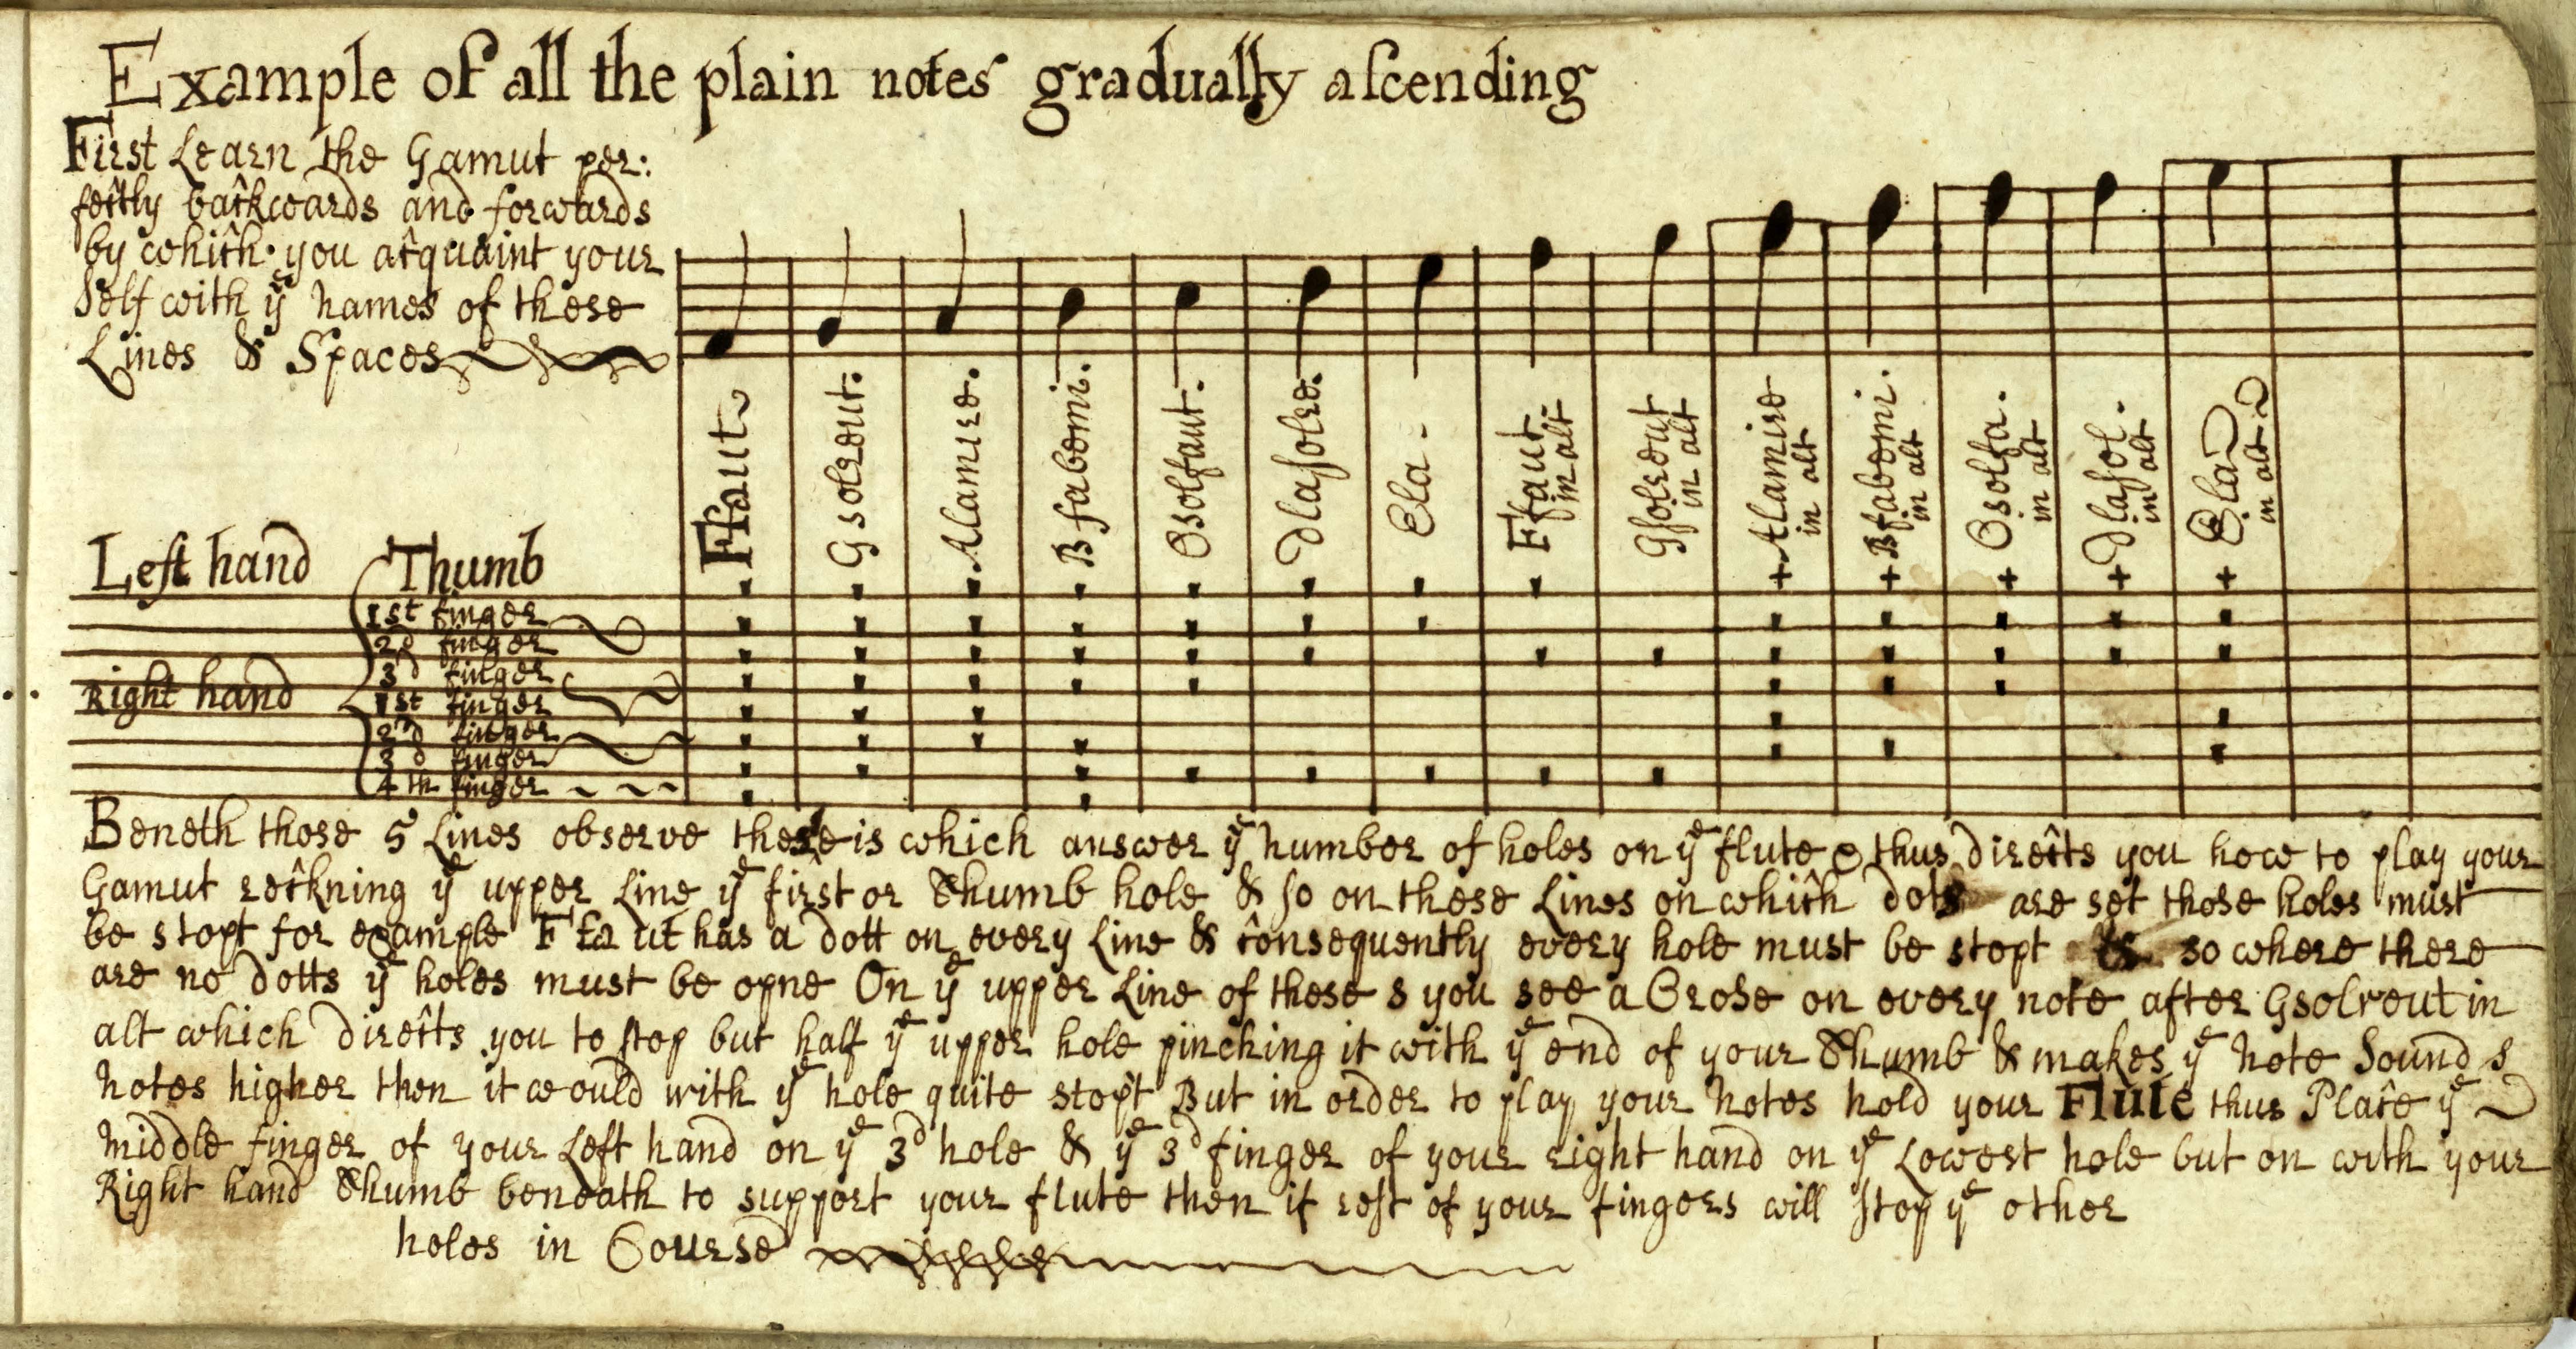 Example of all the plain notes gradually aſcending
First Learn the Gamut per:
fectly backwards and forwards
by which you acquaint your
Self with yͤ names of these
Lines & Spaces
Ffaut
Gsolreut.
Alamire.
Bfabemi.
Csolfaut.
Dlaſolre.
Ela -
Ffaut in alt
Gſolreout in alt
Alamire in alt
Bfabemi. in alt
Csolfa. in alt
Dlaſol. in alt
Ela in alt
Left hand Thumb
1st finger
2d finger
3d finger
Right hand 1st finger
2d finger
3d finger
4th finger
Beneth those 5 Lines observe these is which answer yͤ number of holes on yͤ flute & thus directs you how to play your
Gamut reckning yͤ upper Line yͤ first or Thumb hole & ſo on these Lines on which dots are set those holes must
be stopt for example F fa ut has a dott on every Line & consequently every hole must be stopt & so where there
are no dotts yͤ holes must be opne On yͤ upper Line of these 8 you see a Crose on every note after Gsolreut in
alt which directs you to ſtop but half yͤ upper hole pinching it with yͤ end of your Thumb & makes yͤ note Sound 8
notes higher then it would with yͤ hole quite stopt But in order to play your notes hold your Flute thus Place yͤ
middle finger of your Left hand on yͤ 3d hole & yͤ 3d finger of your right hand on yͤ Lowest hole but on with your
Right hand Thumb beneath to support your flute then if reſt of your fingers will ſtop yͤ other
holes in Course